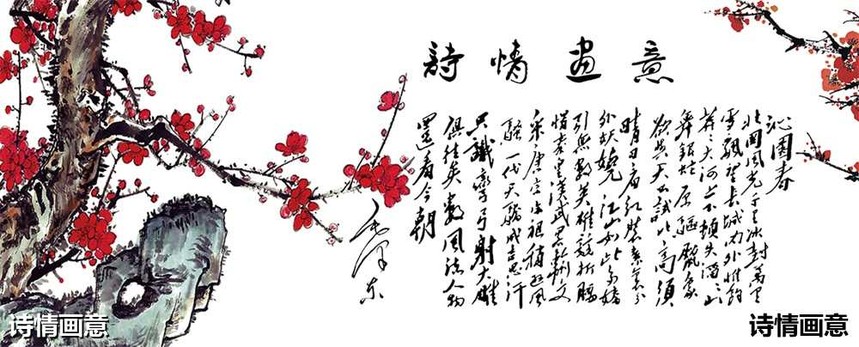 詩情畫意
沁園春
北國風光千里冰封萬里
雪飄望長城內外惟餘
莽莽大河上下頓失滔滔山
舞銀蛇原驅蠟象
欲與天公試比高須
晴日看紅裝素裹分
外妖嬈江山如此多嬌
引無數英雄競折腰
惜秦皇漢武略輸文
采唐宗宋祖稍遜風
騷一代天驕成吉思汗
只識彎弓射大雕
俱往矣數風流人物
還看今朝
毛澤東
诗情画意
诗情画意